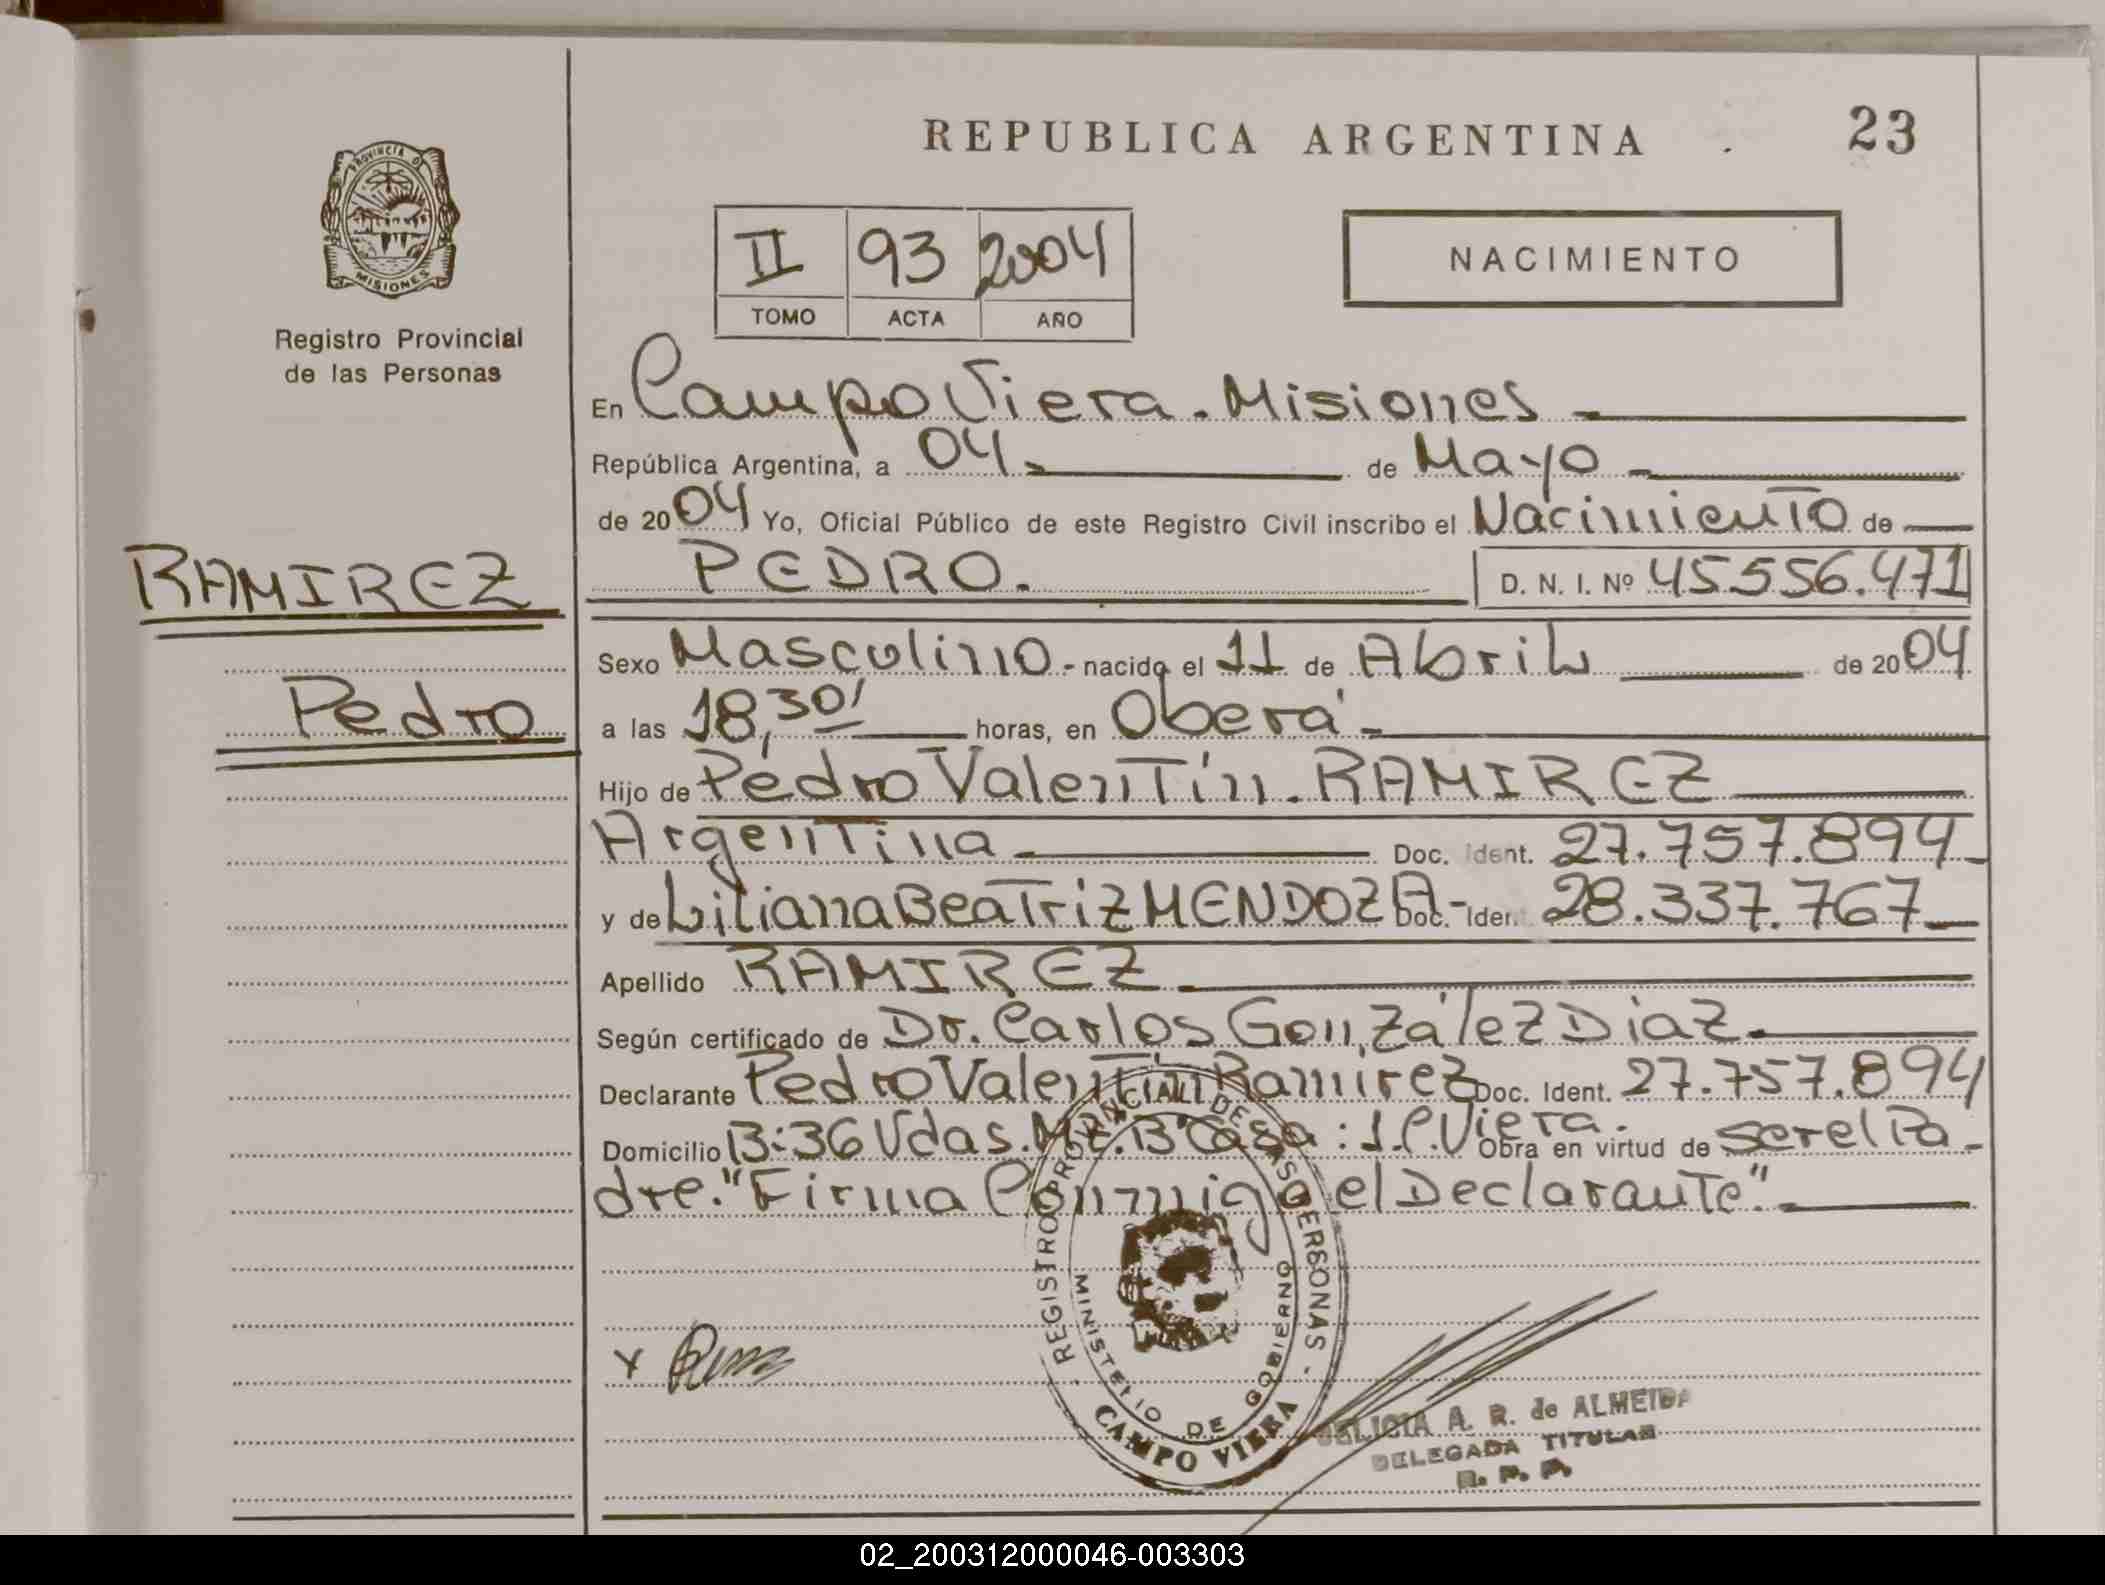 REPUBLICA ARGENTINA
23
PROVINCIA DE
MISIONES
Registro Provincial
de las Personas
II 93 2004
TOMO ACTA AÑO
NACIMIENTO
En Campo Viera. Misiones
República Argentina, a 04 de Mayo
de 2004 Yo, Oficial Público de este Registro Civil inscribo el Nacimiento de
RAMIREZ
PEDRO. D. N. I. Nº 45.556.471
Sexo Masculino - nacido el 11 de Abril de 2004
Pedro
a las 18,30' horas, en Oberá
Hijo de Pedro Valentín. RAMIREZ
Argentina Doc. Ident. 27.757.894
y de Liliana Beatriz MENDOZA- Doc. Ident. 28.337.767
Apellido RAMIREZ
Según certificado de Dr. Carlos González Diaz.
Declarante Pedro Valentín Ramirez Doc. Ident. 27.757.894
Domicilio B:36 Vdas. Mz. B Casa: 1. C. Viera. Obra en virtud de ser el Pa-
dre. "Firma Conmigo el Declarante".
REGISTRO PROVINCIAL DE LAS PERSONAS
MINISTERIO DE GOBIERNO
CAMPO VIERA
DELICIA A. R. de ALMEIDA
DELEGADA TITULAR
R. P. P.
02_200312000046-003303